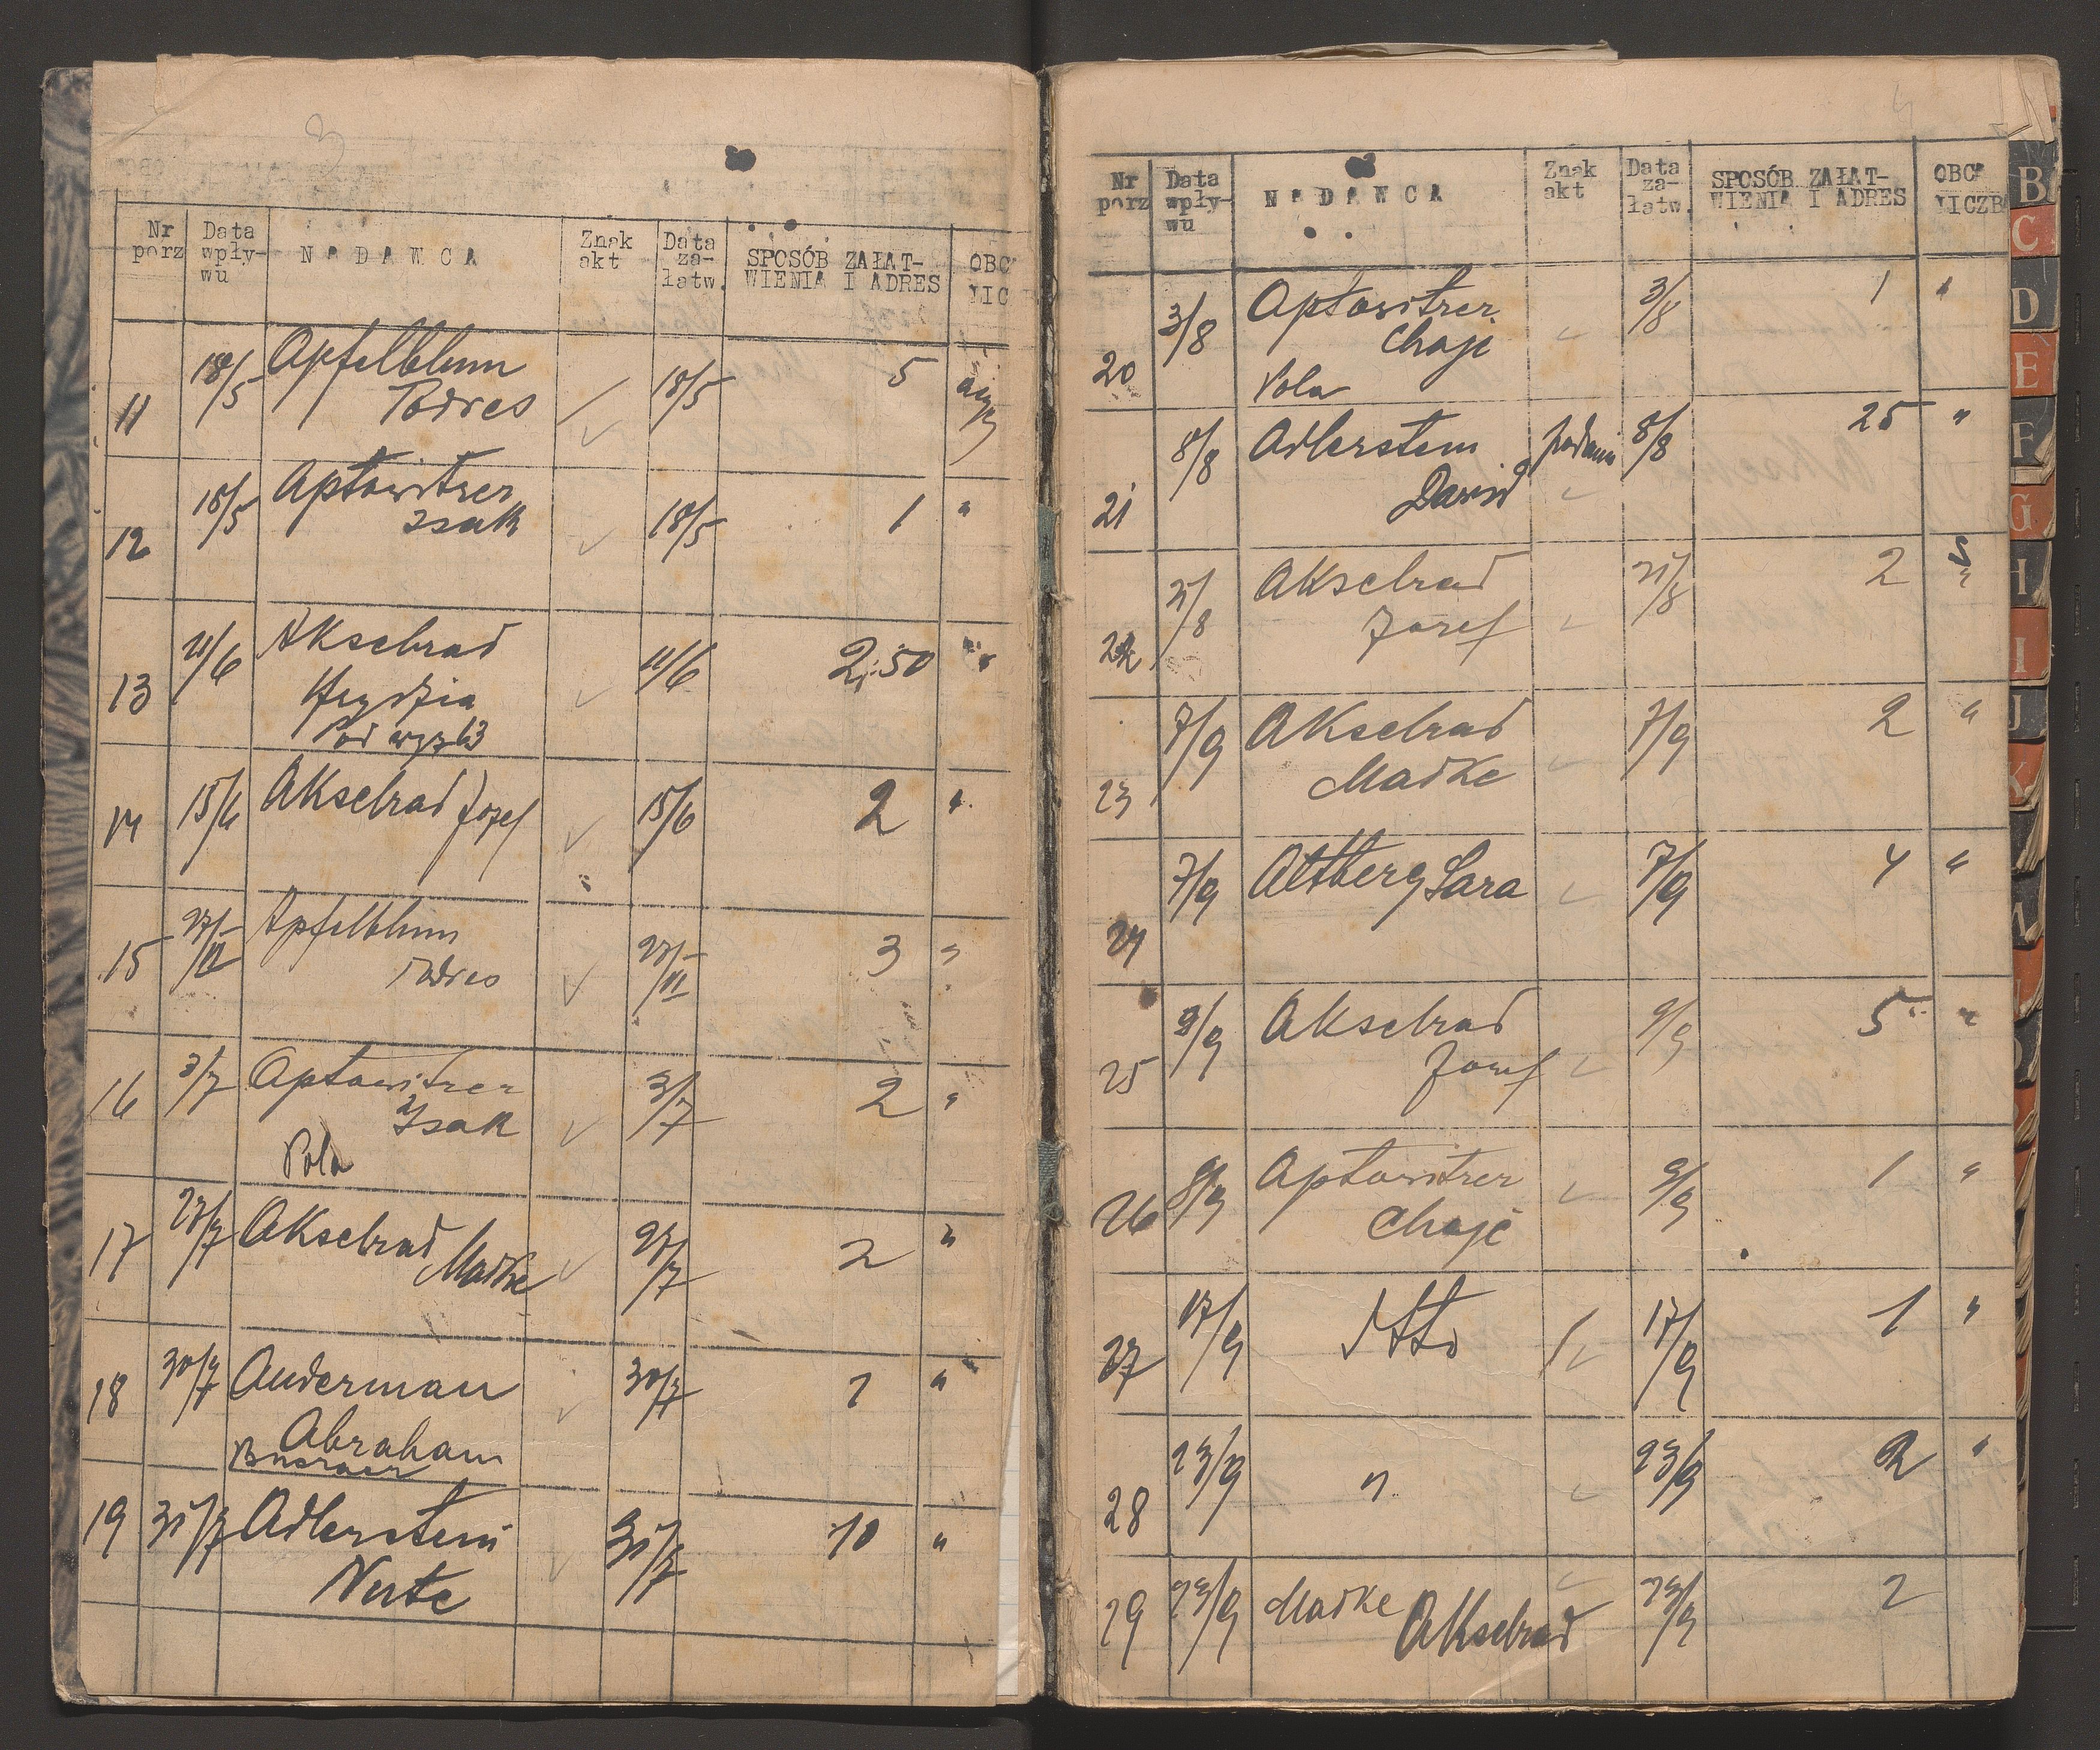 3
Nr porz
Data wpły- wu
NADAWCA
Znak akt
Data za- łatw.
SPOSÓB ZAŁAT- WIENIA I ADRES
OBC
LIC
11 18/5 Apfelblum 18/5 5
Todres
12 18/5 Aptowitzer 18/5 1 "
Isak
13 11/6 Akselrad 11/6 2,50 "
14 15/6 Akselrad Jozef 15/6 2 "
15 27/VI Apfelblum 27/VI 3 "
Todres
16 3/7 Aptowitzer 3/7 2 "
Isak
Pola
17 27/7 Akselrad 27/7 2 "
Madke
18 30/7 Auderman 30/7 1 "
Abraham
19 31/7 Adlerstein 31/7 10 "
Nute
4
Nr porz
Data wpły- wu
NADAWCA
Znak akt
Data za- łatw.
SPOSÓB ZAŁAT- WIENIA I ADRES
OBCA
LICZBA
20 3/8 Aptowitzer 3/8 1 "
Chaje
Pola
21 8/8 Adlerstein podanie 8/8 25 "
Dawid
22 21/8 Akselrad 21/8 2 "
Józef
23 7/9 Akselrad 7/9 2 "
Madke
24 7/9 Altberg Sara 7/9 4 "
25 9/9 Akselrad 9/9 5 "
Jozef
26 9/9 Aptowitzer 9/9 1 "
Chaje
27 17/9 17/9 1 "
28 23/9 " 23/9 2 "
29 23/9 Madke Akselrad 23/9 2
B
C
D
E
F
G
H
I
J
K